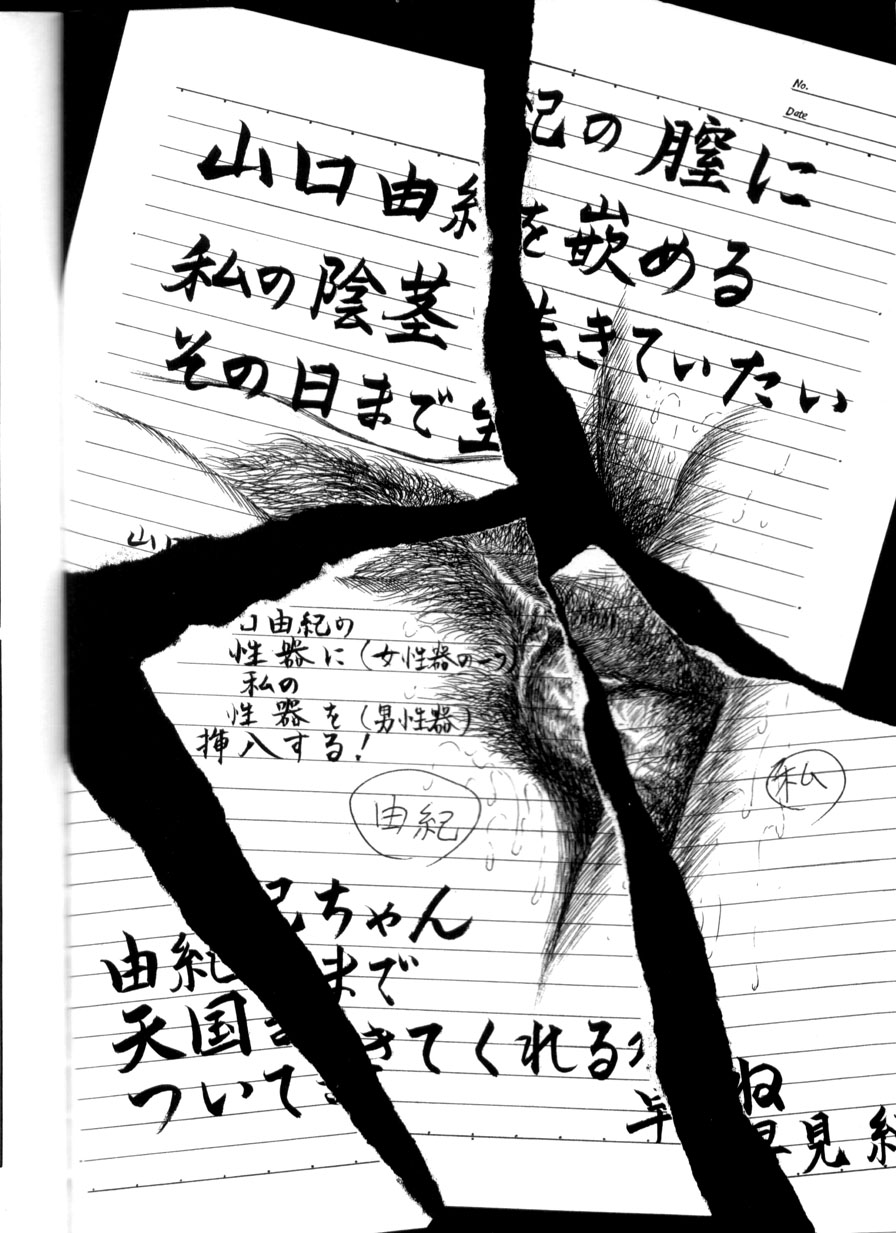 No.
Date
山口由紀の膣に
私の陰茎を嵌める
その日まで生きていたい
山口
口由紀の
性器に(女性器の一つ)
私の
性器を(男性器)
挿入する!
私
由紀
紀ちゃん
由紀 まで
天国 きてくれるか
ついて ね
早見紀